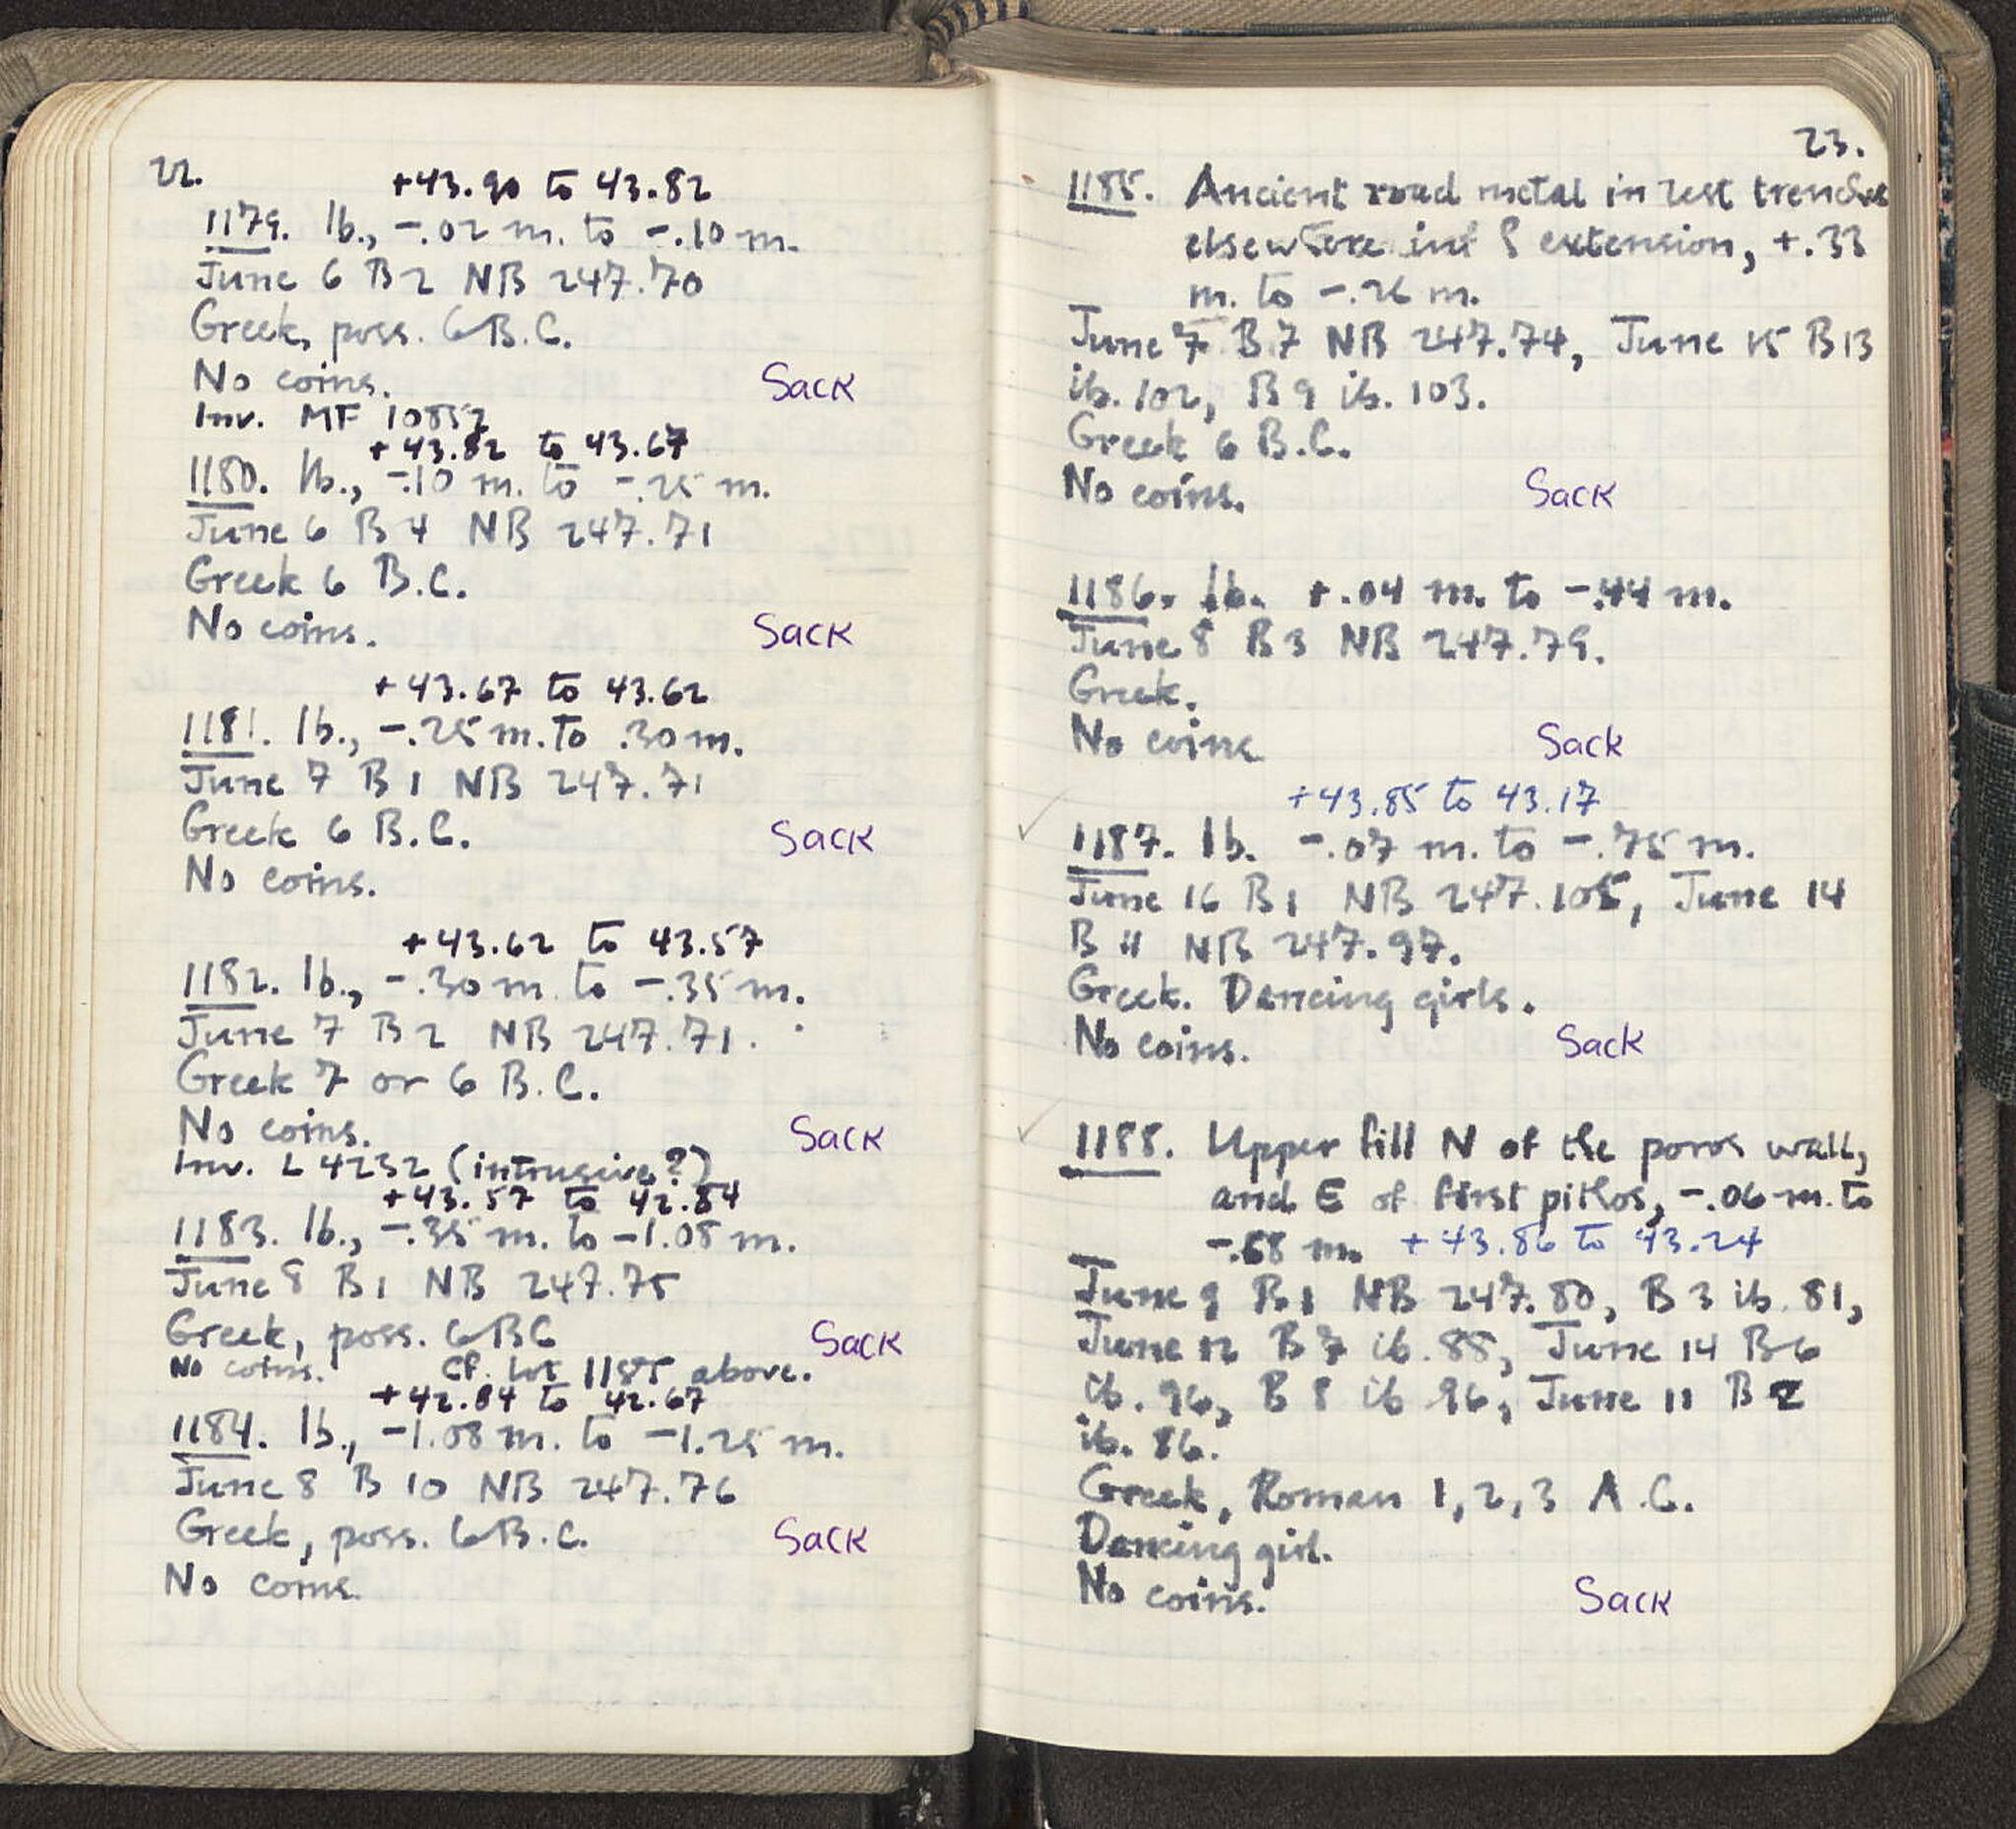 22.
+43.90 to 43.82
1179. Ib., -.02 m. to -.10 m.
June 6 B 2 NB 247.70
Greek, poss. 6 B.C.
No coins. Sack
Inv. MF 10857
+43.82 to 43.67
1180. Ib., -.10 m. to -.25 m.
June 6 B 4 NB 247.71
Greek 6 B.C.
No coins. Sack
+43.67 to 43.62
1181. Ib., -.25 m. to .30 m.
June 7 B 1 NB 247.71
Greek 6 B.C. Sack
No coins.
+43.62 to 43.57
1182. Ib., -.30 m. to -.35 m.
June 7 B 2 NB 247.71.
Greek 7 or 6 B.C.
No coins. Sack
Inv. L 4232 (intrusive?)
+43.57 to 42.84
1183. Ib., -.35 m. to -1.08 m.
June 8 B 1 NB 247.75
Greek, poss. 6 BC Sack
No coins. Cf. lot 1185 above.
+42.84 to 42.67
1184. Ib., -1.08 m. to -1.25 m.
June 8 B 10 NB 247.76
Greek, poss. 6 B.C. Sack
No coins.
23.
1185. Ancient road metal in test trenches
elsewhere in S extension, +.33
m. to -.26 m.
June 7 B 7 NB 247.74, June 15 B 13
ib. 102, B 9 ib. 103.
Greek 6 B.C.
No coins. Sack
1186. Ib. +.04 m. to -.44 m.
June 8 B 3 NB 247.79.
Greek.
No coins Sack
+43.85 to 43.17
1187. Ib. -.07 m. to -.75 m.
June 16 B 1 NB 247.105, June 14
B 11 NB 247.97.
Greek. Dancing girls.
No coins. Sack
1188. Upper fill N of the poros wall,
and E of first pithos, -.06 m. to
-.68 m. +43.86 to 43.24
June 9 B 1 NB 247.80, B 3 ib. 81,
June 12 B 7 ib. 88, June 14 B 6
ib. 96, B 8 ib 96, June 11 B 2
ib. 86.
Greek, Roman 1, 2, 3 A.C.
Dancing girl.
No coins. Sack